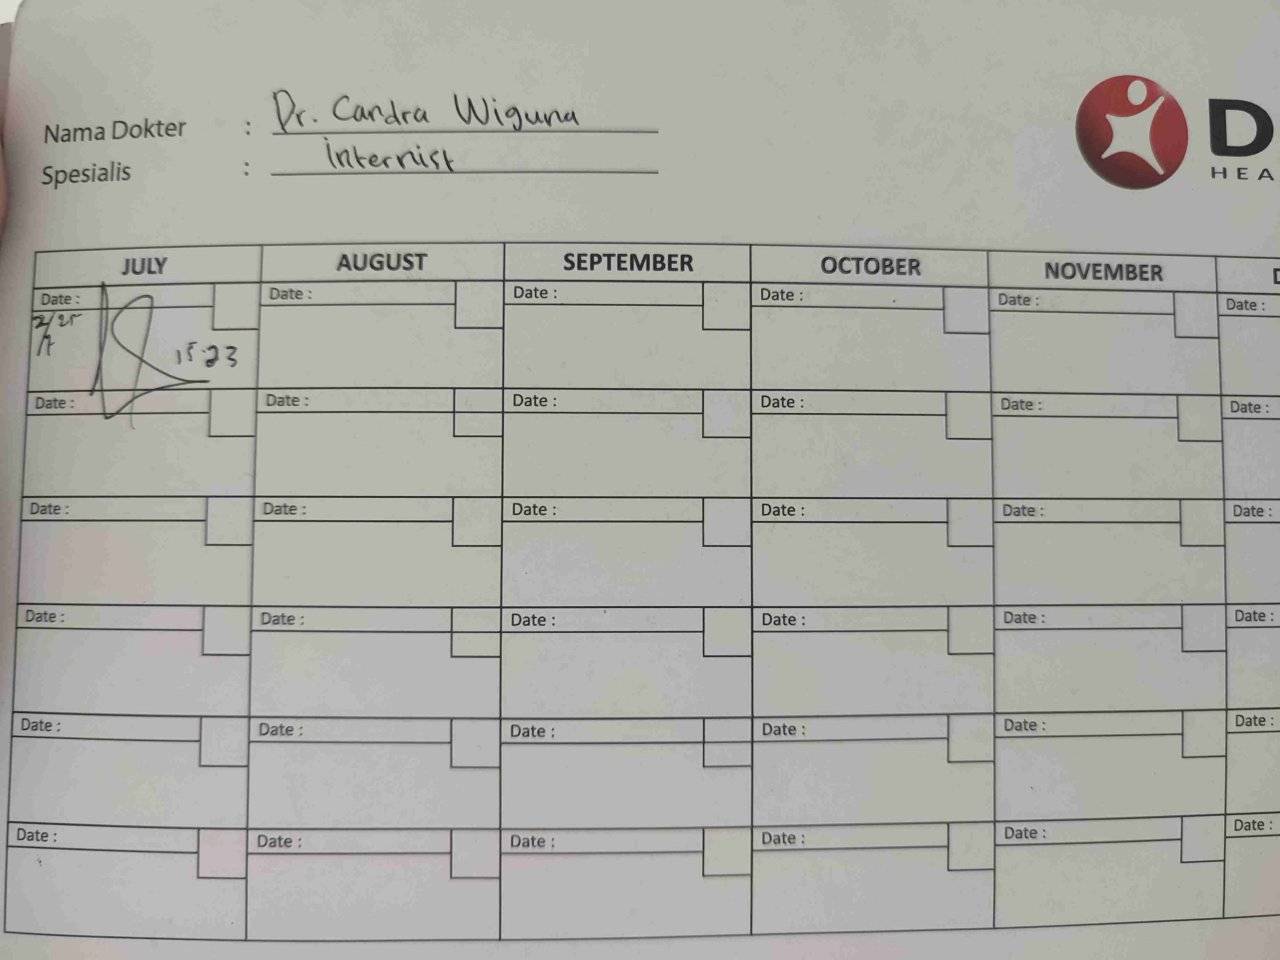 Nama Dokter : Dr. Candra Wiguna
Spesialis : Internist
D
HEA
JULY AUGUST SEPTEMBER OCTOBER NOVEMBER D
Date : Date : Date : Date : Date : Date :
2/25
7
15.23
Date : Date : Date : Date : Date : Date :
Date : Date : Date : Date : Date : Date :
Date : Date : Date : Date : Date : Date :
Date : Date : Date : Date : Date : Date :
Date : Date : Date : Date : Date : Date :